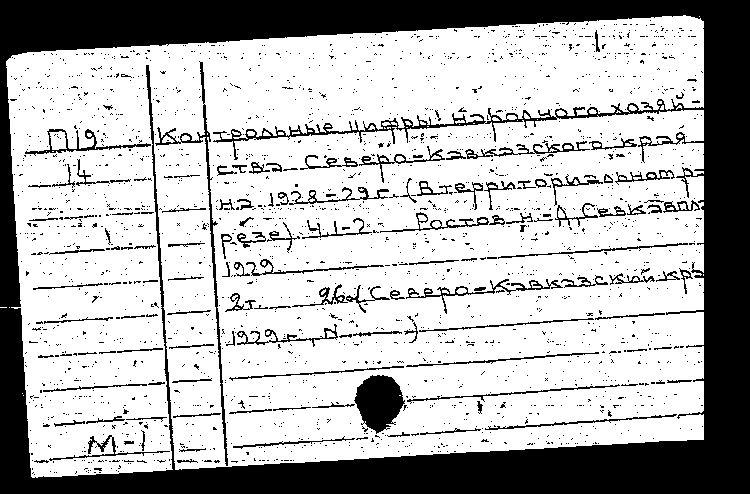 П19 Контрольные цифры народного хозяй-
14 ства Северо-Кавказского края
на 1928-29 г. (В территориальном ра
резе) Ч.1-2. Ростов н-Д, Севкавпла
1929
2т. (Северо-Кавказский кра
1929 г., N )
М-1